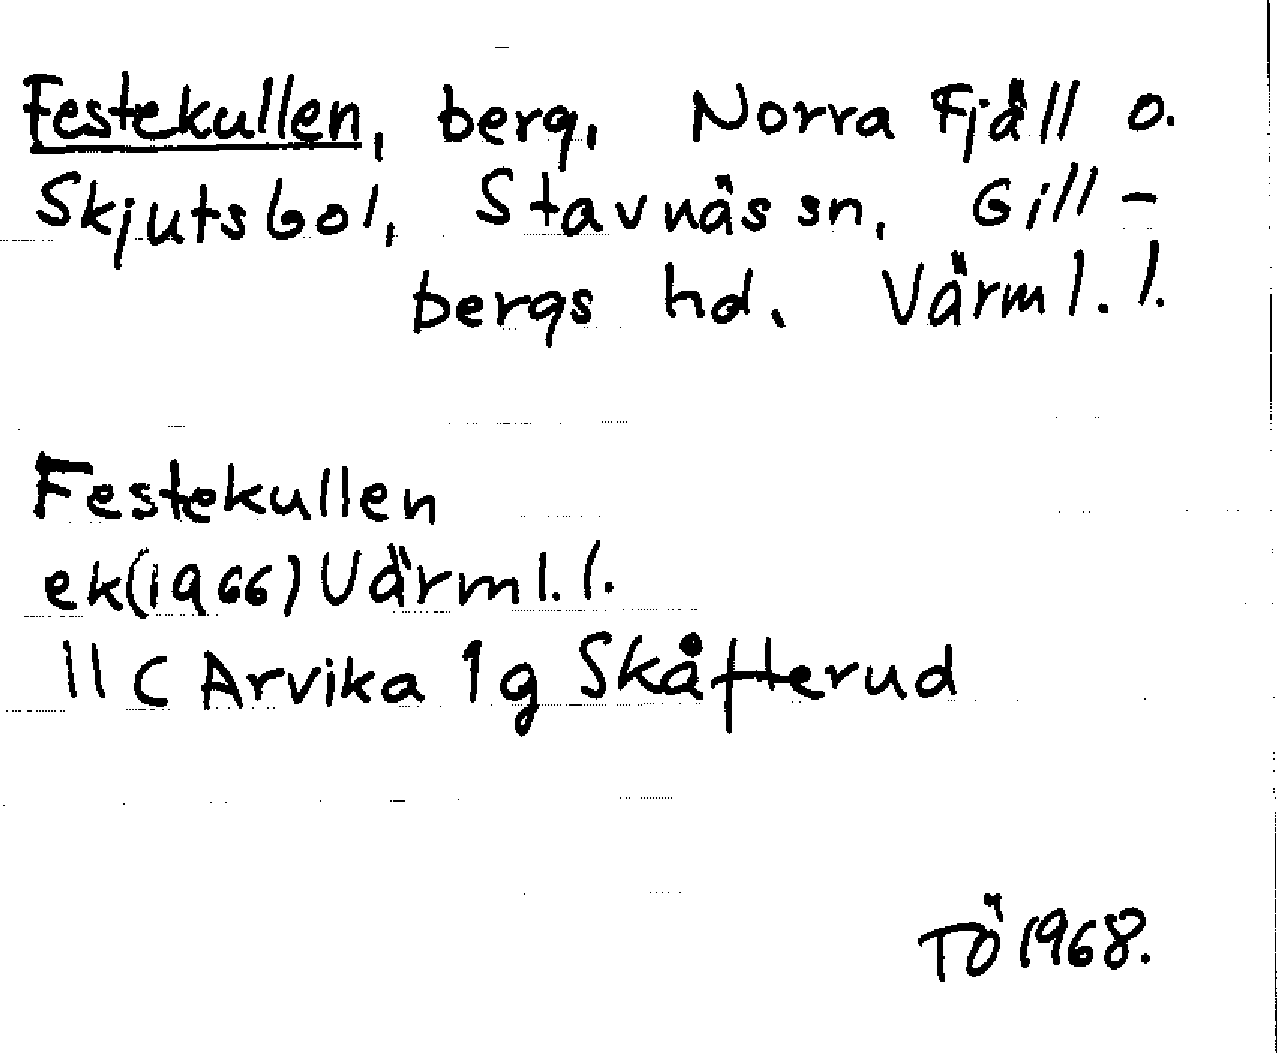 Festekullen, berg, Norra Fjäll o.
Skjutsbol, Stavnäs sn, Gill-
bergs hd. Värml. l.
Festekullen
ek(1966) Värml. l.
11 C Arvika 1g Skåfterud
TÖ 1968.